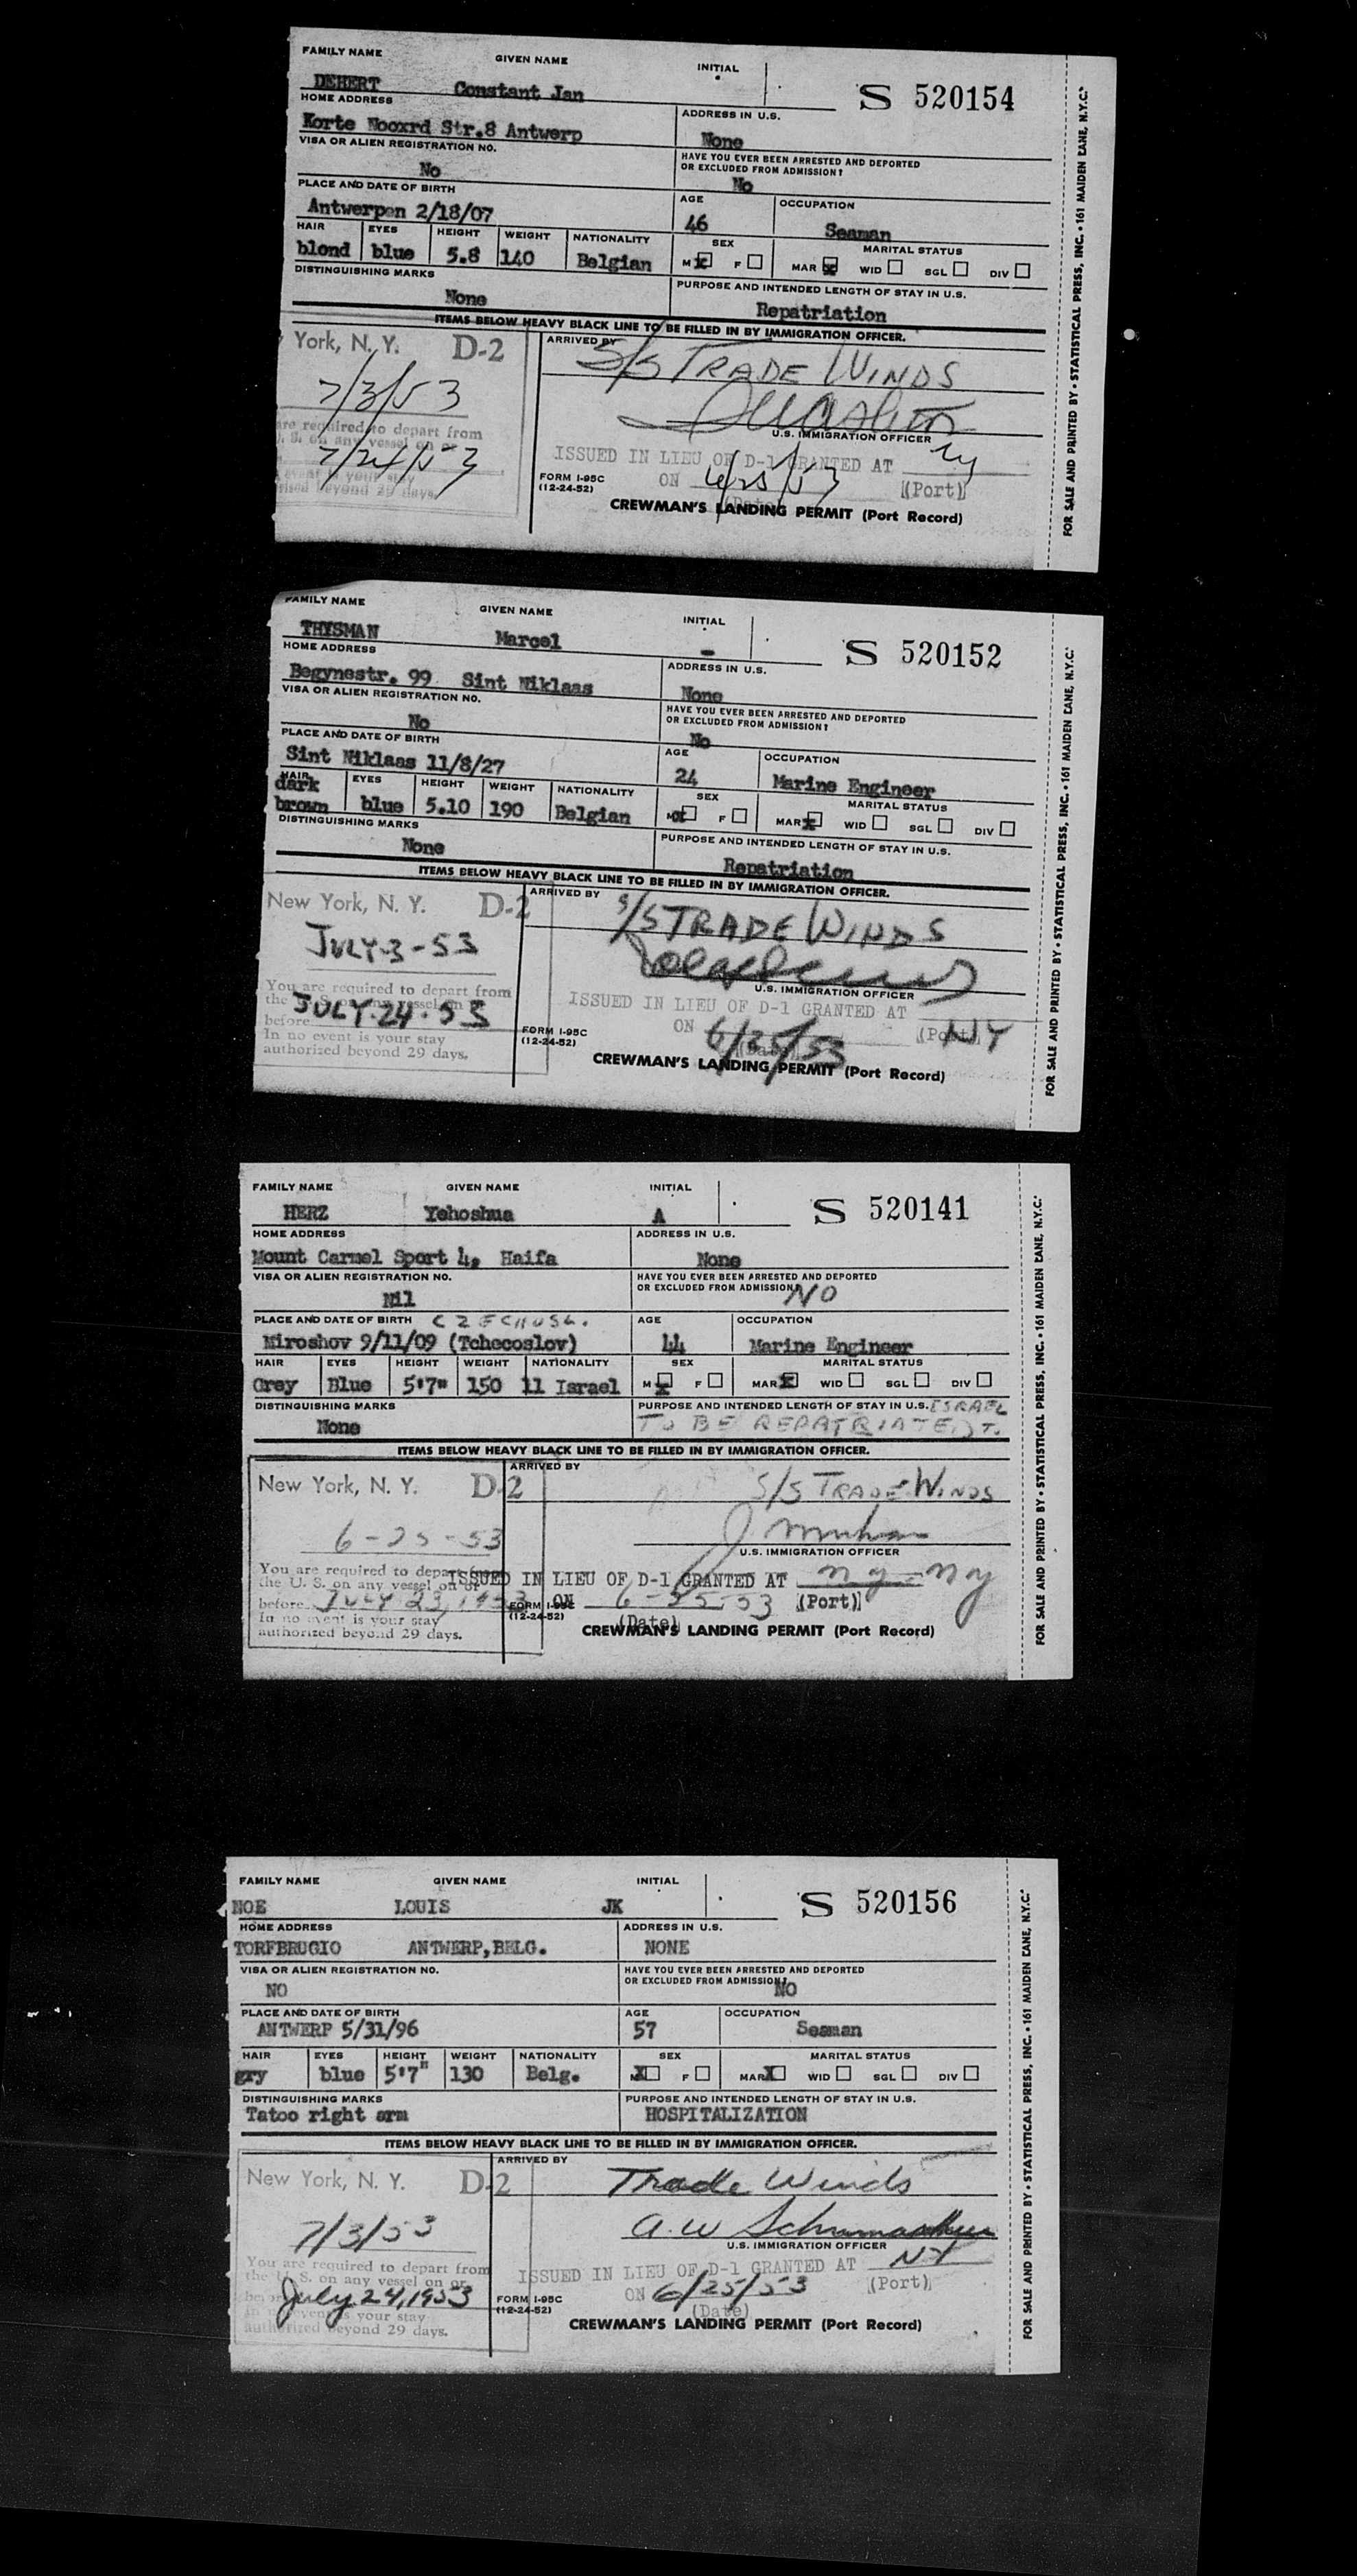 FAMILY NAME GIVEN NAME INITIAL
DEHERT Constant Jan S 520154
HOME ADDRESS ADDRESS IN U.S.
Korte Nooxrd Str.8 Antwerp None
VISA OR ALIEN REGISTRATION NO. HAVE YOU EVER BEEN ARRESTED AND DEPORTED OR EXCLUDED FROM ADMISSION?
No No
PLACE AND DATE OF BIRTH AGE OCCUPATION
Antwerpen 2/18/07 46 Seaman
HAIR EYES HEIGHT WEIGHT NATIONALITY SEX MARITAL STATUS
blond blue 5.8 140 Belgian M X F MAR X WID SGL DIV
DISTINGUISHING MARKS PURPOSE AND INTENDED LENGTH OF STAY IN U.S.
None Repatriation
ITEMS BELOW HEAVY BLACK LINE TO BE FILLED IN BY IMMIGRATION OFFICER.
York, N. Y. D-2 ARRIVED BY S/S TRADE WINDS
7/3/53
U.S. IMMIGRATION OFFICER
are required to depart from
S. on any vessel on or
7/24/53
event is your stay
rised beyond 29 days.
ISSUED IN LIEU OF D-1 GRANTED AT NY
ON 6/25/53 (Date) (Port)
FORM I-95C
(12-24-52)
CREWMAN'S LANDING PERMIT (Port Record)
FOR SALE AND PRINTED BY • STATISTICAL PRESS, INC. • 161 MAIDEN LANE, N.Y.C.
FAMILY NAME GIVEN NAME INITIAL
THYSMAN Marcel - S 520152
HOME ADDRESS ADDRESS IN U.S.
Begynestr. 99 Sint Niklaas None
VISA OR ALIEN REGISTRATION NO. HAVE YOU EVER BEEN ARRESTED AND DEPORTED OR EXCLUDED FROM ADMISSION?
No No
PLACE AND DATE OF BIRTH AGE OCCUPATION
Sint Niklaas 11/8/27 24 Marine Engineer
HAIR EYES HEIGHT WEIGHT NATIONALITY SEX MARITAL STATUS
dark brown blue 5.10 190 Belgian M X F MAR X WID SGL DIV
DISTINGUISHING MARKS PURPOSE AND INTENDED LENGTH OF STAY IN U.S.
None Repatriation
ITEMS BELOW HEAVY BLACK LINE TO BE FILLED IN BY IMMIGRATION OFFICER.
New York, N. Y. D-2 ARRIVED BY S/S TRADE WINDS
JULY-3-53
U.S. IMMIGRATION OFFICER
You are required to depart from
the U. S. on any vessel on or
before JULY-24-53
In no event is your stay
authorized beyond 29 days.
ISSUED IN LIEU OF D-1 GRANTED AT NY
ON 6/25/53 (Date) (Port)
FORM I-95C
(12-24-52)
CREWMAN'S LANDING PERMIT (Port Record)
FOR SALE AND PRINTED BY • STATISTICAL PRESS, INC. • 161 MAIDEN LANE, N.Y.C.
FAMILY NAME GIVEN NAME INITIAL
HERZ Yehoshua A S 520141
HOME ADDRESS ADDRESS IN U.S.
Mount Carmel Sport 4, Haifa None
VISA OR ALIEN REGISTRATION NO. HAVE YOU EVER BEEN ARRESTED AND DEPORTED OR EXCLUDED FROM ADMISSION?
Nil NO
PLACE AND DATE OF BIRTH CZECHOSL. AGE OCCUPATION
Miroshov 9/11/09 (Tchecoslov) 44 Marine Engineer
HAIR EYES HEIGHT WEIGHT NATIONALITY SEX MARITAL STATUS
Grey Blue 5'7" 150 11 Israel M X F MAR X WID SGL DIV
DISTINGUISHING MARKS PURPOSE AND INTENDED LENGTH OF STAY IN U.S. ISRAEL
None TO BE REPATRIATED T.
ITEMS BELOW HEAVY BLACK LINE TO BE FILLED IN BY IMMIGRATION OFFICER.
New York, N. Y. D-2 ARRIVED BY S/S TRADE WINDS
6-25-53
U.S. IMMIGRATION OFFICER
You are required to depart from
the U. S. on any vessel on or
before JULY 23, 1953
In no event is your stay
authorized beyond 29 days.
ISSUED IN LIEU OF D-1 GRANTED AT n y - n y
ON 6-25-53 (Date) (Port)
FORM I-95C
(12-24-52)
CREWMAN'S LANDING PERMIT (Port Record)
FOR SALE AND PRINTED BY • STATISTICAL PRESS, INC. • 161 MAIDEN LANE, N.Y.C.
FAMILY NAME GIVEN NAME INITIAL
NOE LOUIS JK S 520156
HOME ADDRESS ADDRESS IN U.S.
TORFBRUGIO ANTWERP,BELG. NONE
VISA OR ALIEN REGISTRATION NO. HAVE YOU EVER BEEN ARRESTED AND DEPORTED OR EXCLUDED FROM ADMISSION?
NO NO
PLACE AND DATE OF BIRTH AGE OCCUPATION
ANTWERP 5/31/96 57 Seaman
HAIR EYES HEIGHT WEIGHT NATIONALITY SEX MARITAL STATUS
gry blue 5'7" 130 Belg. M X F MAR X WID SGL DIV
DISTINGUISHING MARKS PURPOSE AND INTENDED LENGTH OF STAY IN U.S.
Tatoo right arm HOSPITALIZATION
ITEMS BELOW HEAVY BLACK LINE TO BE FILLED IN BY IMMIGRATION OFFICER.
New York, N. Y. D-2 ARRIVED BY Trade Winds
7/3/53 A. W
U.S. IMMIGRATION OFFICER
You are required to depart from
the U. S. on any vessel on or
before July 24, 1953
In no event is your stay
authorized beyond 29 days.
ISSUED IN LIEU OF D-1 GRANTED AT NY
ON 6/25/53 (Date) (Port)
FORM I-95C
(12-24-52)
CREWMAN'S LANDING PERMIT (Port Record)
FOR SALE AND PRINTED BY • STATISTICAL PRESS, INC. • 161 MAIDEN LANE, N.Y.C.